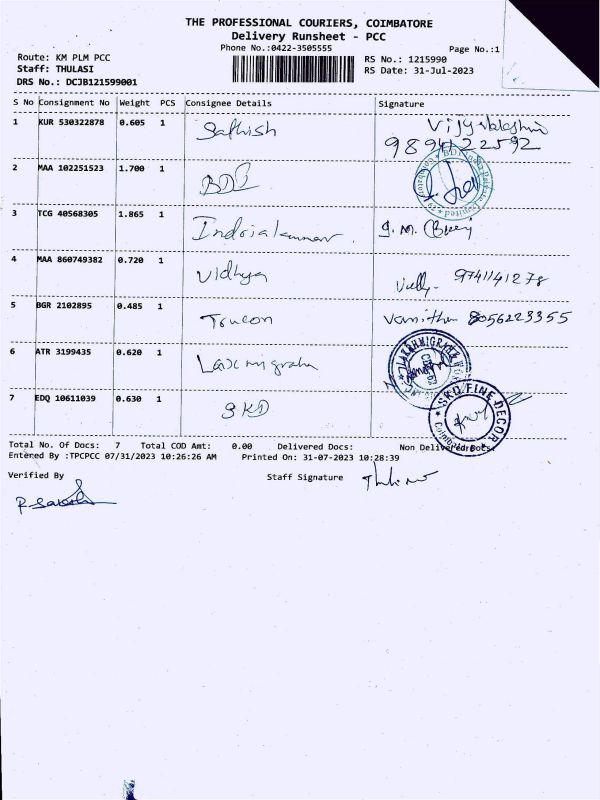 THE PROFESSIONAL COURIERS, COIMBATORE
Delivery Runsheet - PCC
Phone No.:0422-3505555
Page No.:1
Route: KM PLM PCC
RS No.: 1215990
Staff: THULASI
RS Date: 31-Jul-2023
DRS No.: DCJB121599001
S No Consignment No Weight PCS Consignee Details Signature
1 KUR 530322878 0.605 1 Sathish Vijyalakshmi
9894122592
2 MAA 102251523 1.700 1 BDB
3 TCG 40568305 1.865 1 Indrajakumar. g.m.
4 MAA 860749382 0.720 1 Vidhya Vally- 9741141278
5 BGR 2102895 0.485 1 Trucon Vanitha 8056223355
6 ATR 3199435 0.620 1 Laxmigraha
7 EDQ 10611039 0.630 1 SKD
SKD FINE DECOR
Coimbatore
Total No. Of Docs: 7 Total COD Amt: 0.00 Delivered Docs: Non Delivered Docs:
Entered By :TPCPCC 07/31/2023 10:26:26 AM Printed On: 31-07-2023 10:28:39
Verified By Staff Signature